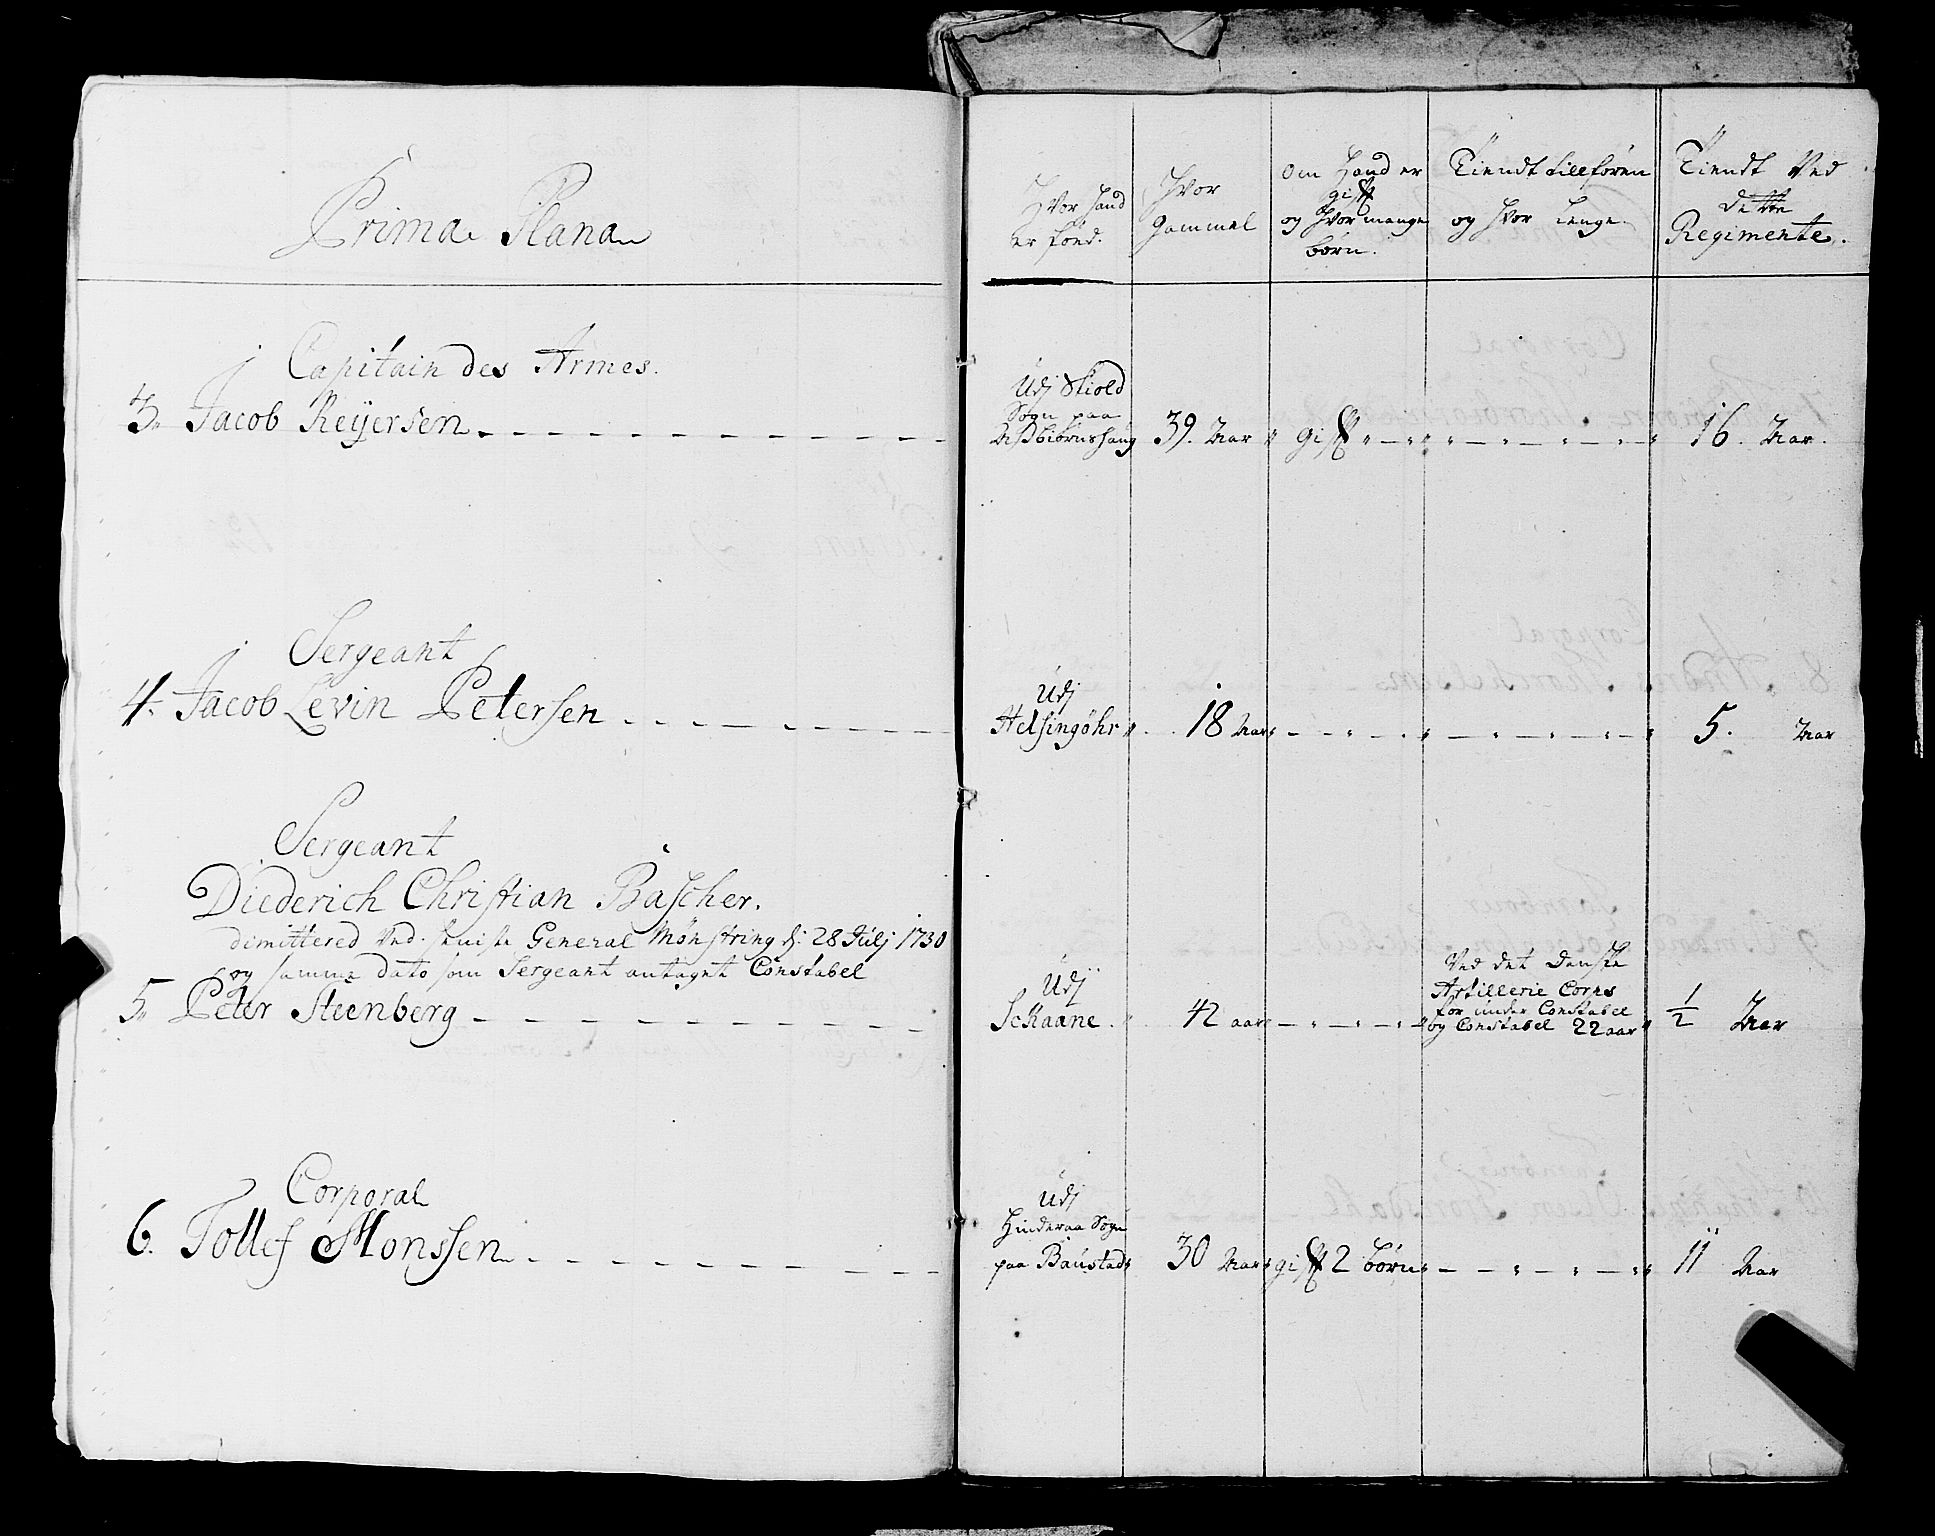 Prima Plana
Hvor Hand
er föed.
Hvor
Gammel
Om Hand er
gift
og Hvor mange
börn.
Tiendt tillforen
og Hvor lenge.
Tiendt Ved
dette
Regimente.
Capitain des Armes.
3. Jacob Reijersen.
Udj Skiold
Sogn paa
39. Aar
gift
16. Aar.
Sergeant
4. Jacob Levin Petersen
Udj
Helsingöhr
18 Aar
5. Aar
Sergeant
Diederich Christian Bascher.
dimittered Ved seniste General Mönstring dj: 28 Julj 1730
og samme dato som Sergeant antaget Constabel
5. Peter Steenberg
Udj
Schaane.
42 aar
Ved det Danske
Artillerie Corps
for under Constabel
og Constabel 22 aar
1/2 Aar
Corporal
6. Tollef Monssen
Udj
Hinderaa Sogn
paa Baustad
30 Aar
gift 2 börn
11 Aar